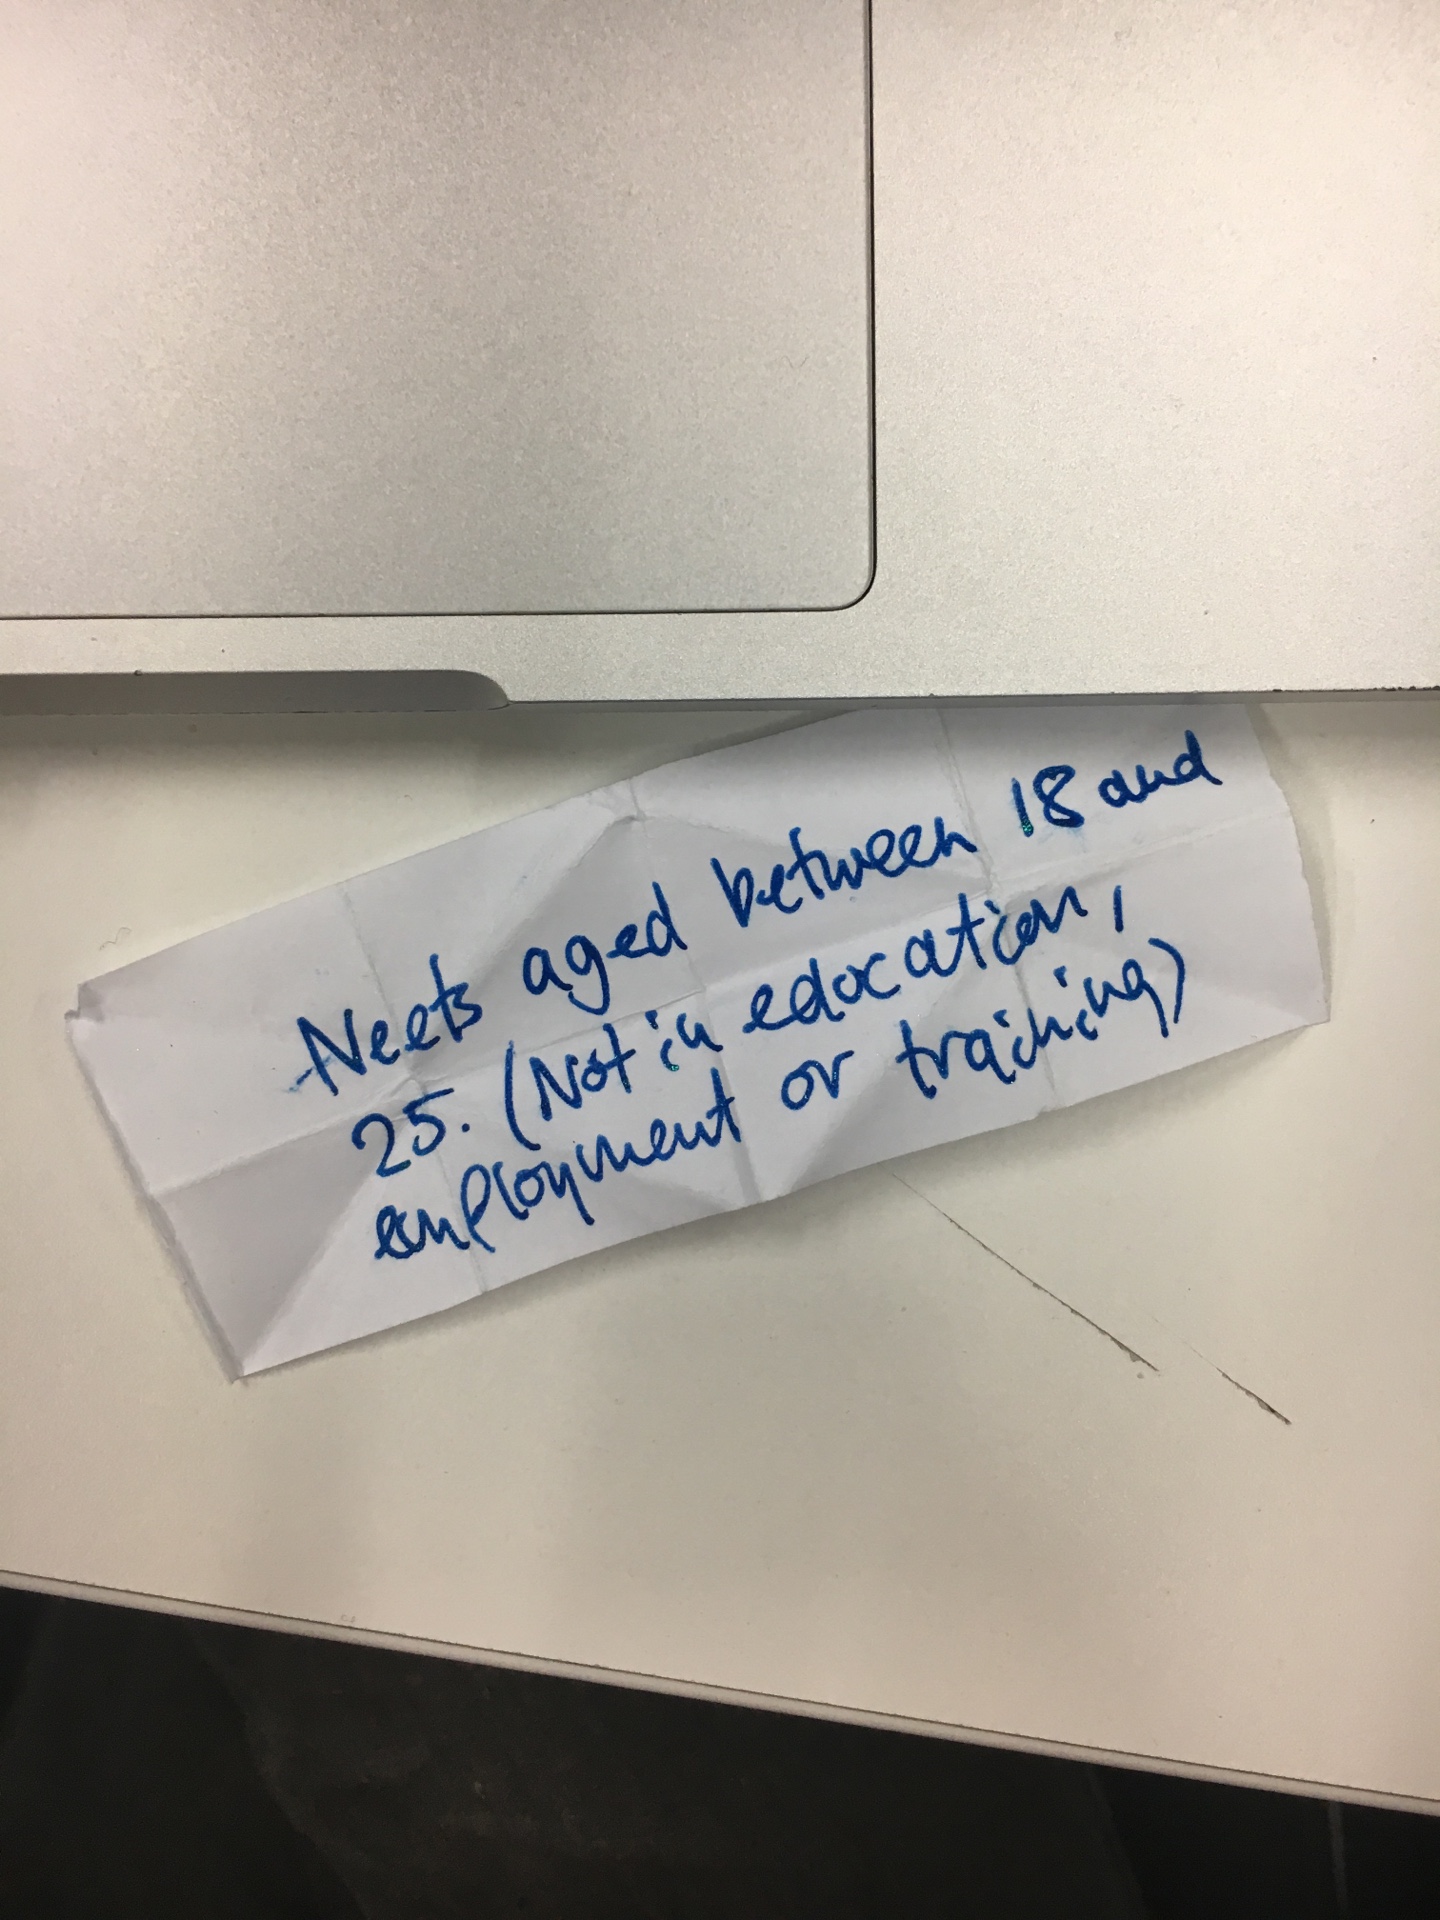 Neets aged between 18 and
25. (Not in edocation,
employment or training)